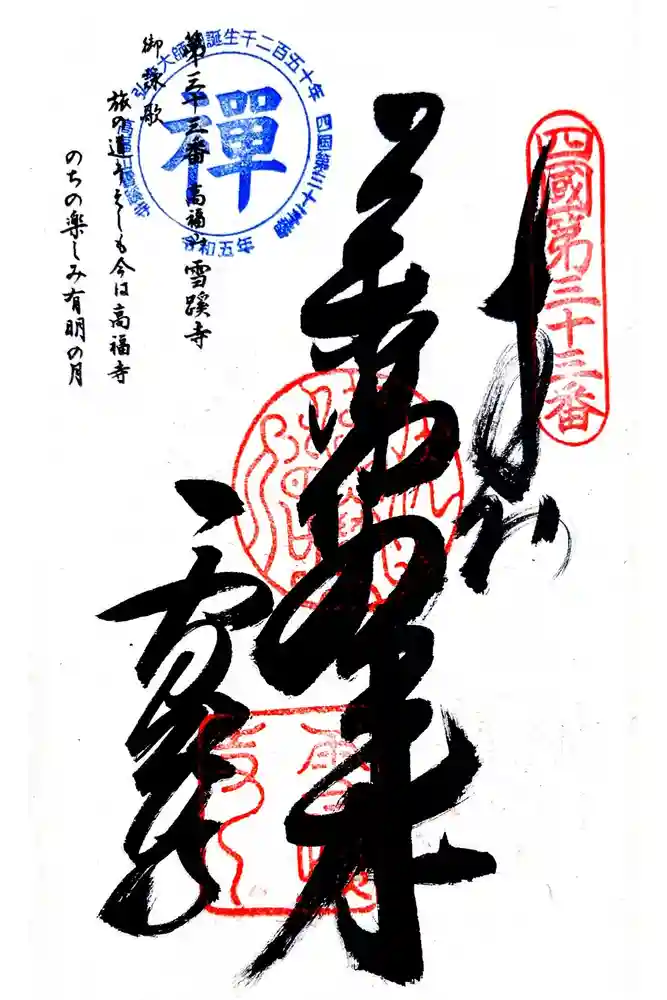 四國第三十三番
奉納
薬師如来
雪蹊寺
第三十三番 高福山 雪蹊寺
御詠歌
旅の道うえしも今は高福寺
のちの楽しみ有明の月
弘法大師御誕生千二百五十年
四国第三十三番
禪
令和五年
高福山雪蹊寺